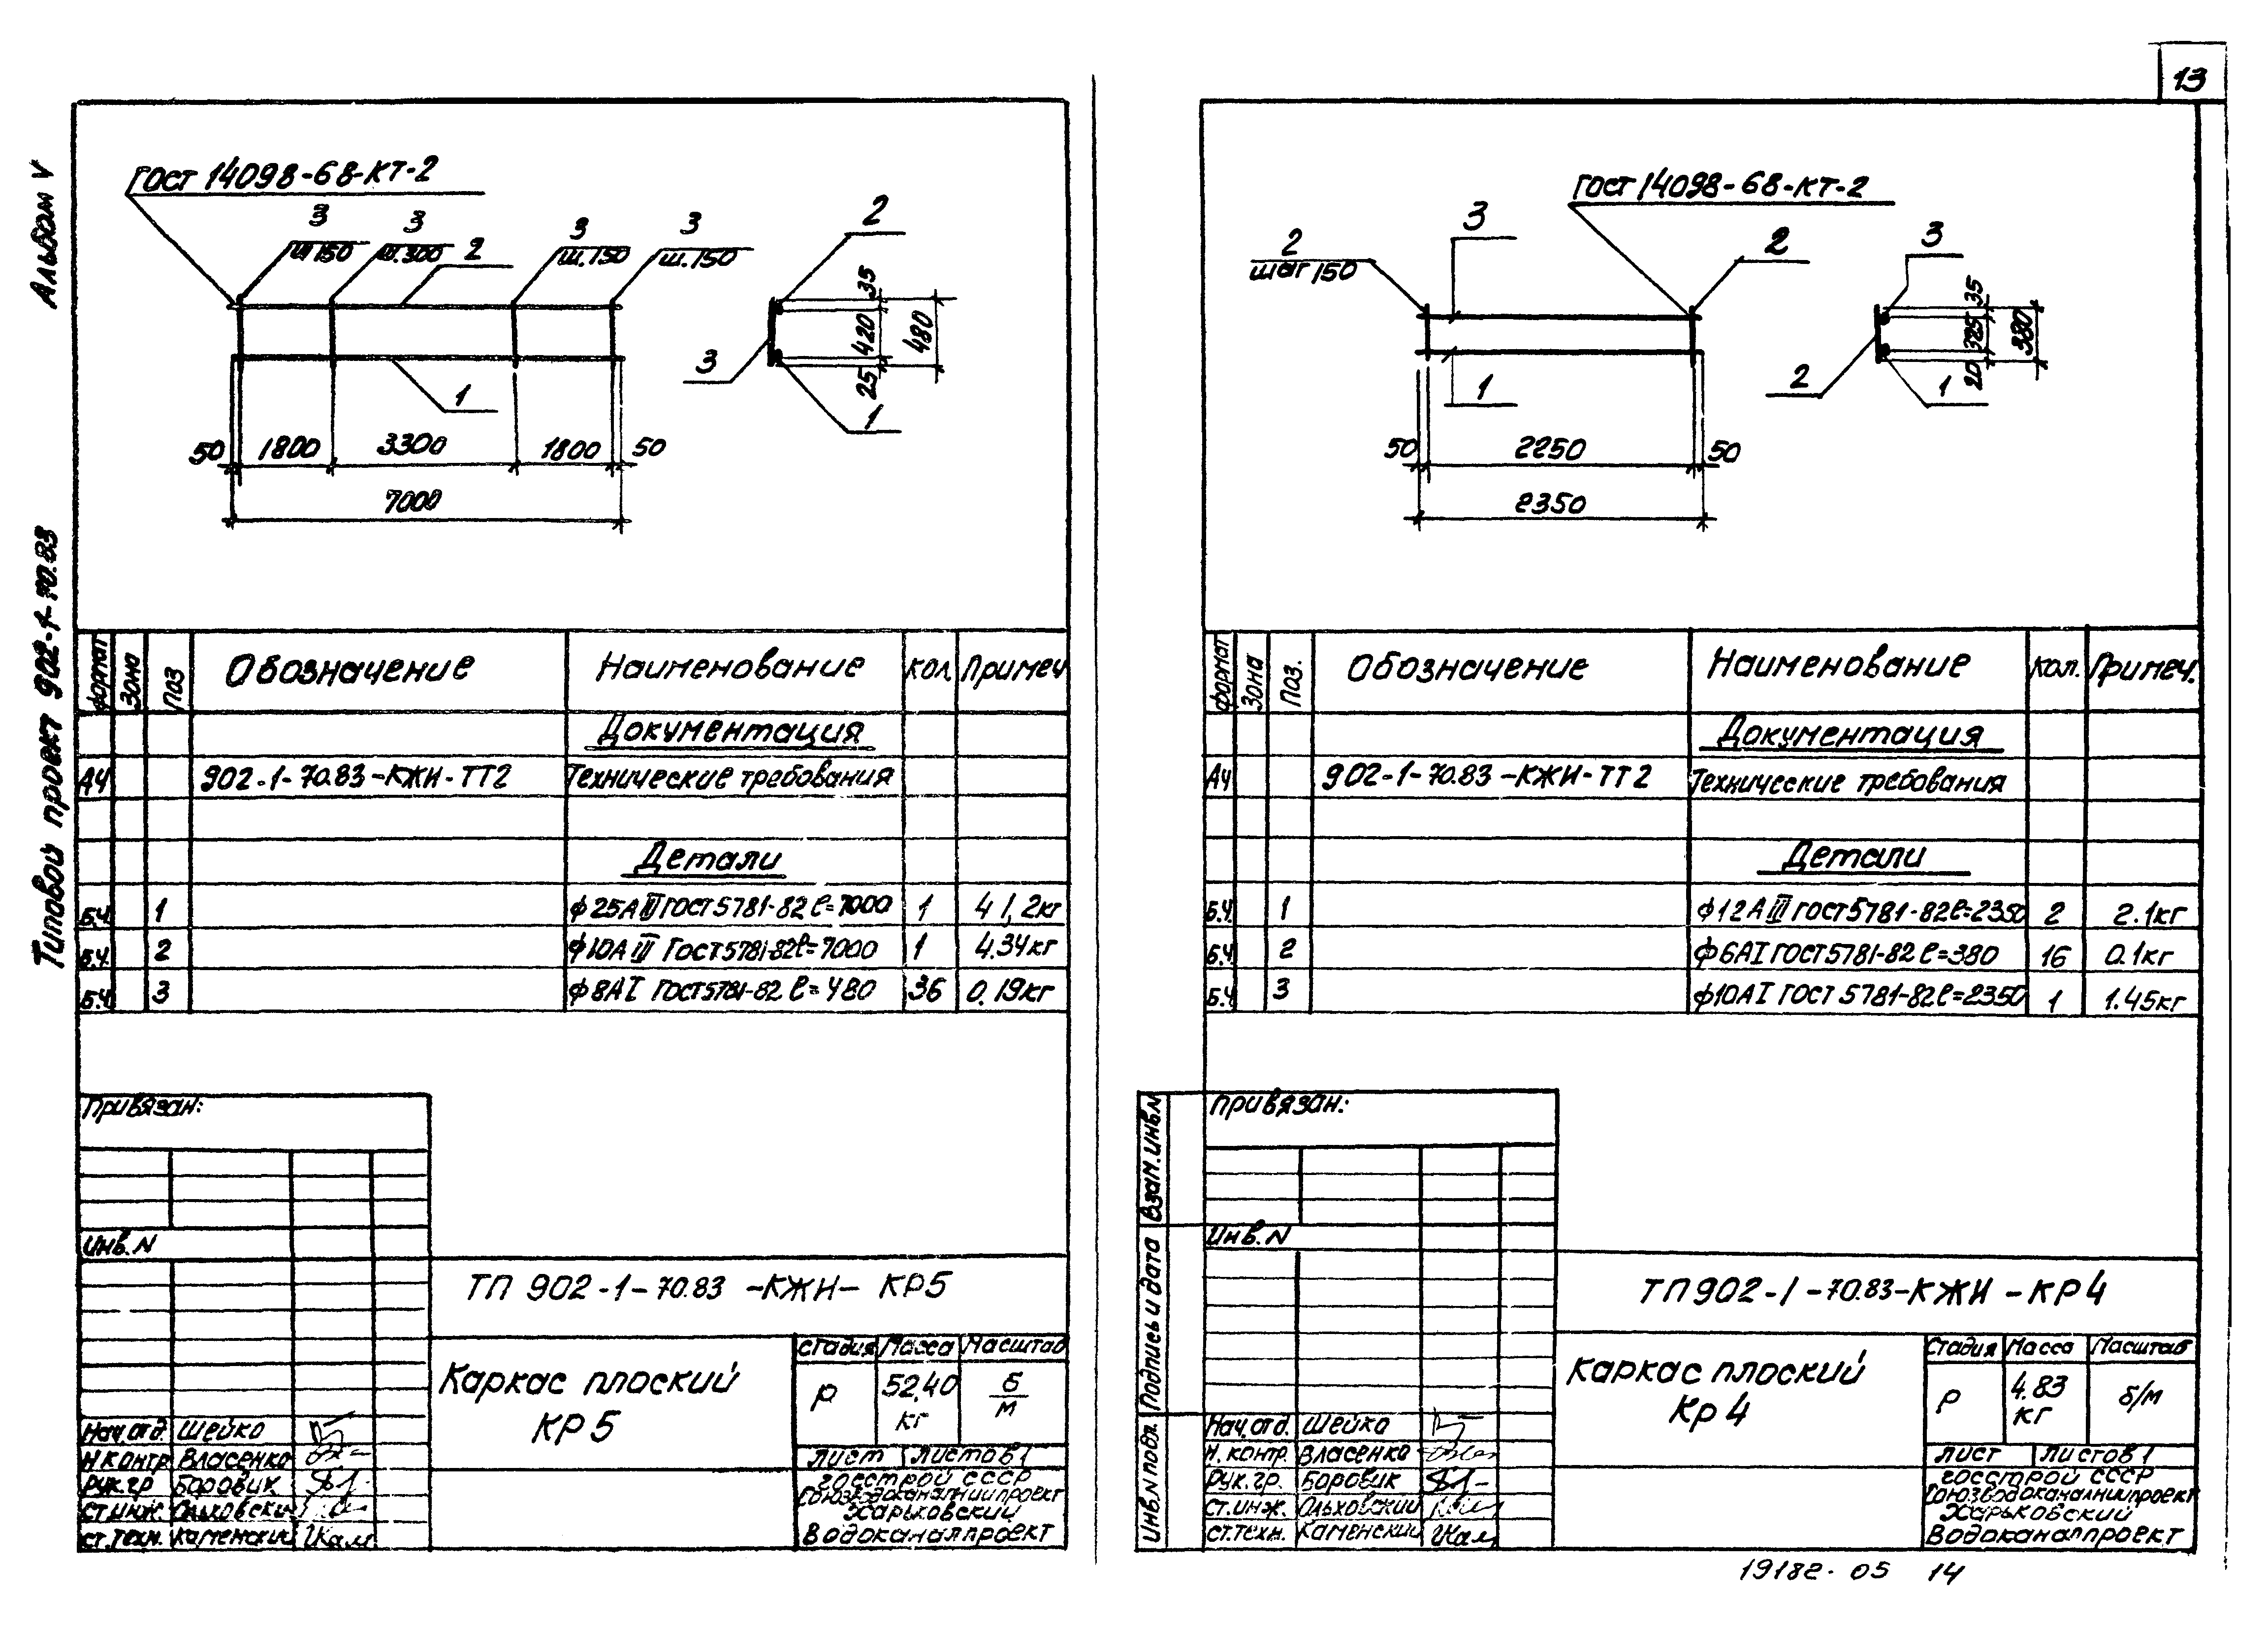 13
Альбом V
Типовой проект 902-1-70.83
ГОСТ 14098-68-КТ-2
3
ш 150
3
ш. 300
2
3
ш. 150
3
ш. 150
1
50
1800
3300
1800
50
7000
2
3
1
35
420
25
480
Формат
Зона
Поз
Обозначение
Наименование
Кол.
Примеч
Документация
А4
902-1-70.83-КЖИ-ТТ2
Технические требования
Детали
Б.Ч. 1 ф25АIII ГОСТ 5781-82 l=7000 1 41,2кг
Б.Ч. 2 ф10АIII ГОСТ 5781-82 l=7000 1 4.34кг
Б.Ч. 3 ф8АI ГОСТ 5781-82 l=480 36 0.19кг
Привязан:
Инв. N
ТП 902-1-70.83-КЖИ-КР5
Каркас плоский
КР5
Стадия Масса Масштаб
Р 52.40 кг Б/М
Лист Листов 1
Госстрой СССР
Союзводоканалниипроект
Харьковский
Водоканалпроект
Нач. отд. Шейко
Н контр Власенко
Рук. гр Боровик
Ст. инж. Ольховский
Ст. техн. Каменский
ГОСТ 14098-68-КТ-2
2
шаг 150
3
2
1
50
2250
50
2350
3
2
1
35
325
20
380
Формат
Зона
Поз.
Обозначение
Наименование
Кол.
Примеч.
Документация
А4
902-1-70.83-КЖИ-ТТ2
Технические требования
Детали
Б.Ч. 1 ф12АIII ГОСТ 5781-82 l=2350 2 2.1кг
Б.Ч. 2 ф6АI ГОСТ 5781-82 l=380 16 0.1кг
Б.Ч. 3 ф10АI ГОСТ 5781-82 l=2350 1 1.45кг
Взам. инв. N
Подпись и дата
Инв. N подл.
Привязан:
Инв. N
ТП 902-1-70.83-КЖИ-КР4
Каркас плоский
Кр 4
Стадия Масса Масштаб
Р 4.83 кг б/м
Лист Листов 1
Госстрой СССР
Союзводоканалниипроект
Харьковский
Водоканалпроект
Нач. отд. Шейко
Н. контр. Власенко
Рук. гр. Боровик
Ст. инж. Ольховский
Ст. техн. Каменский
19182-05 14